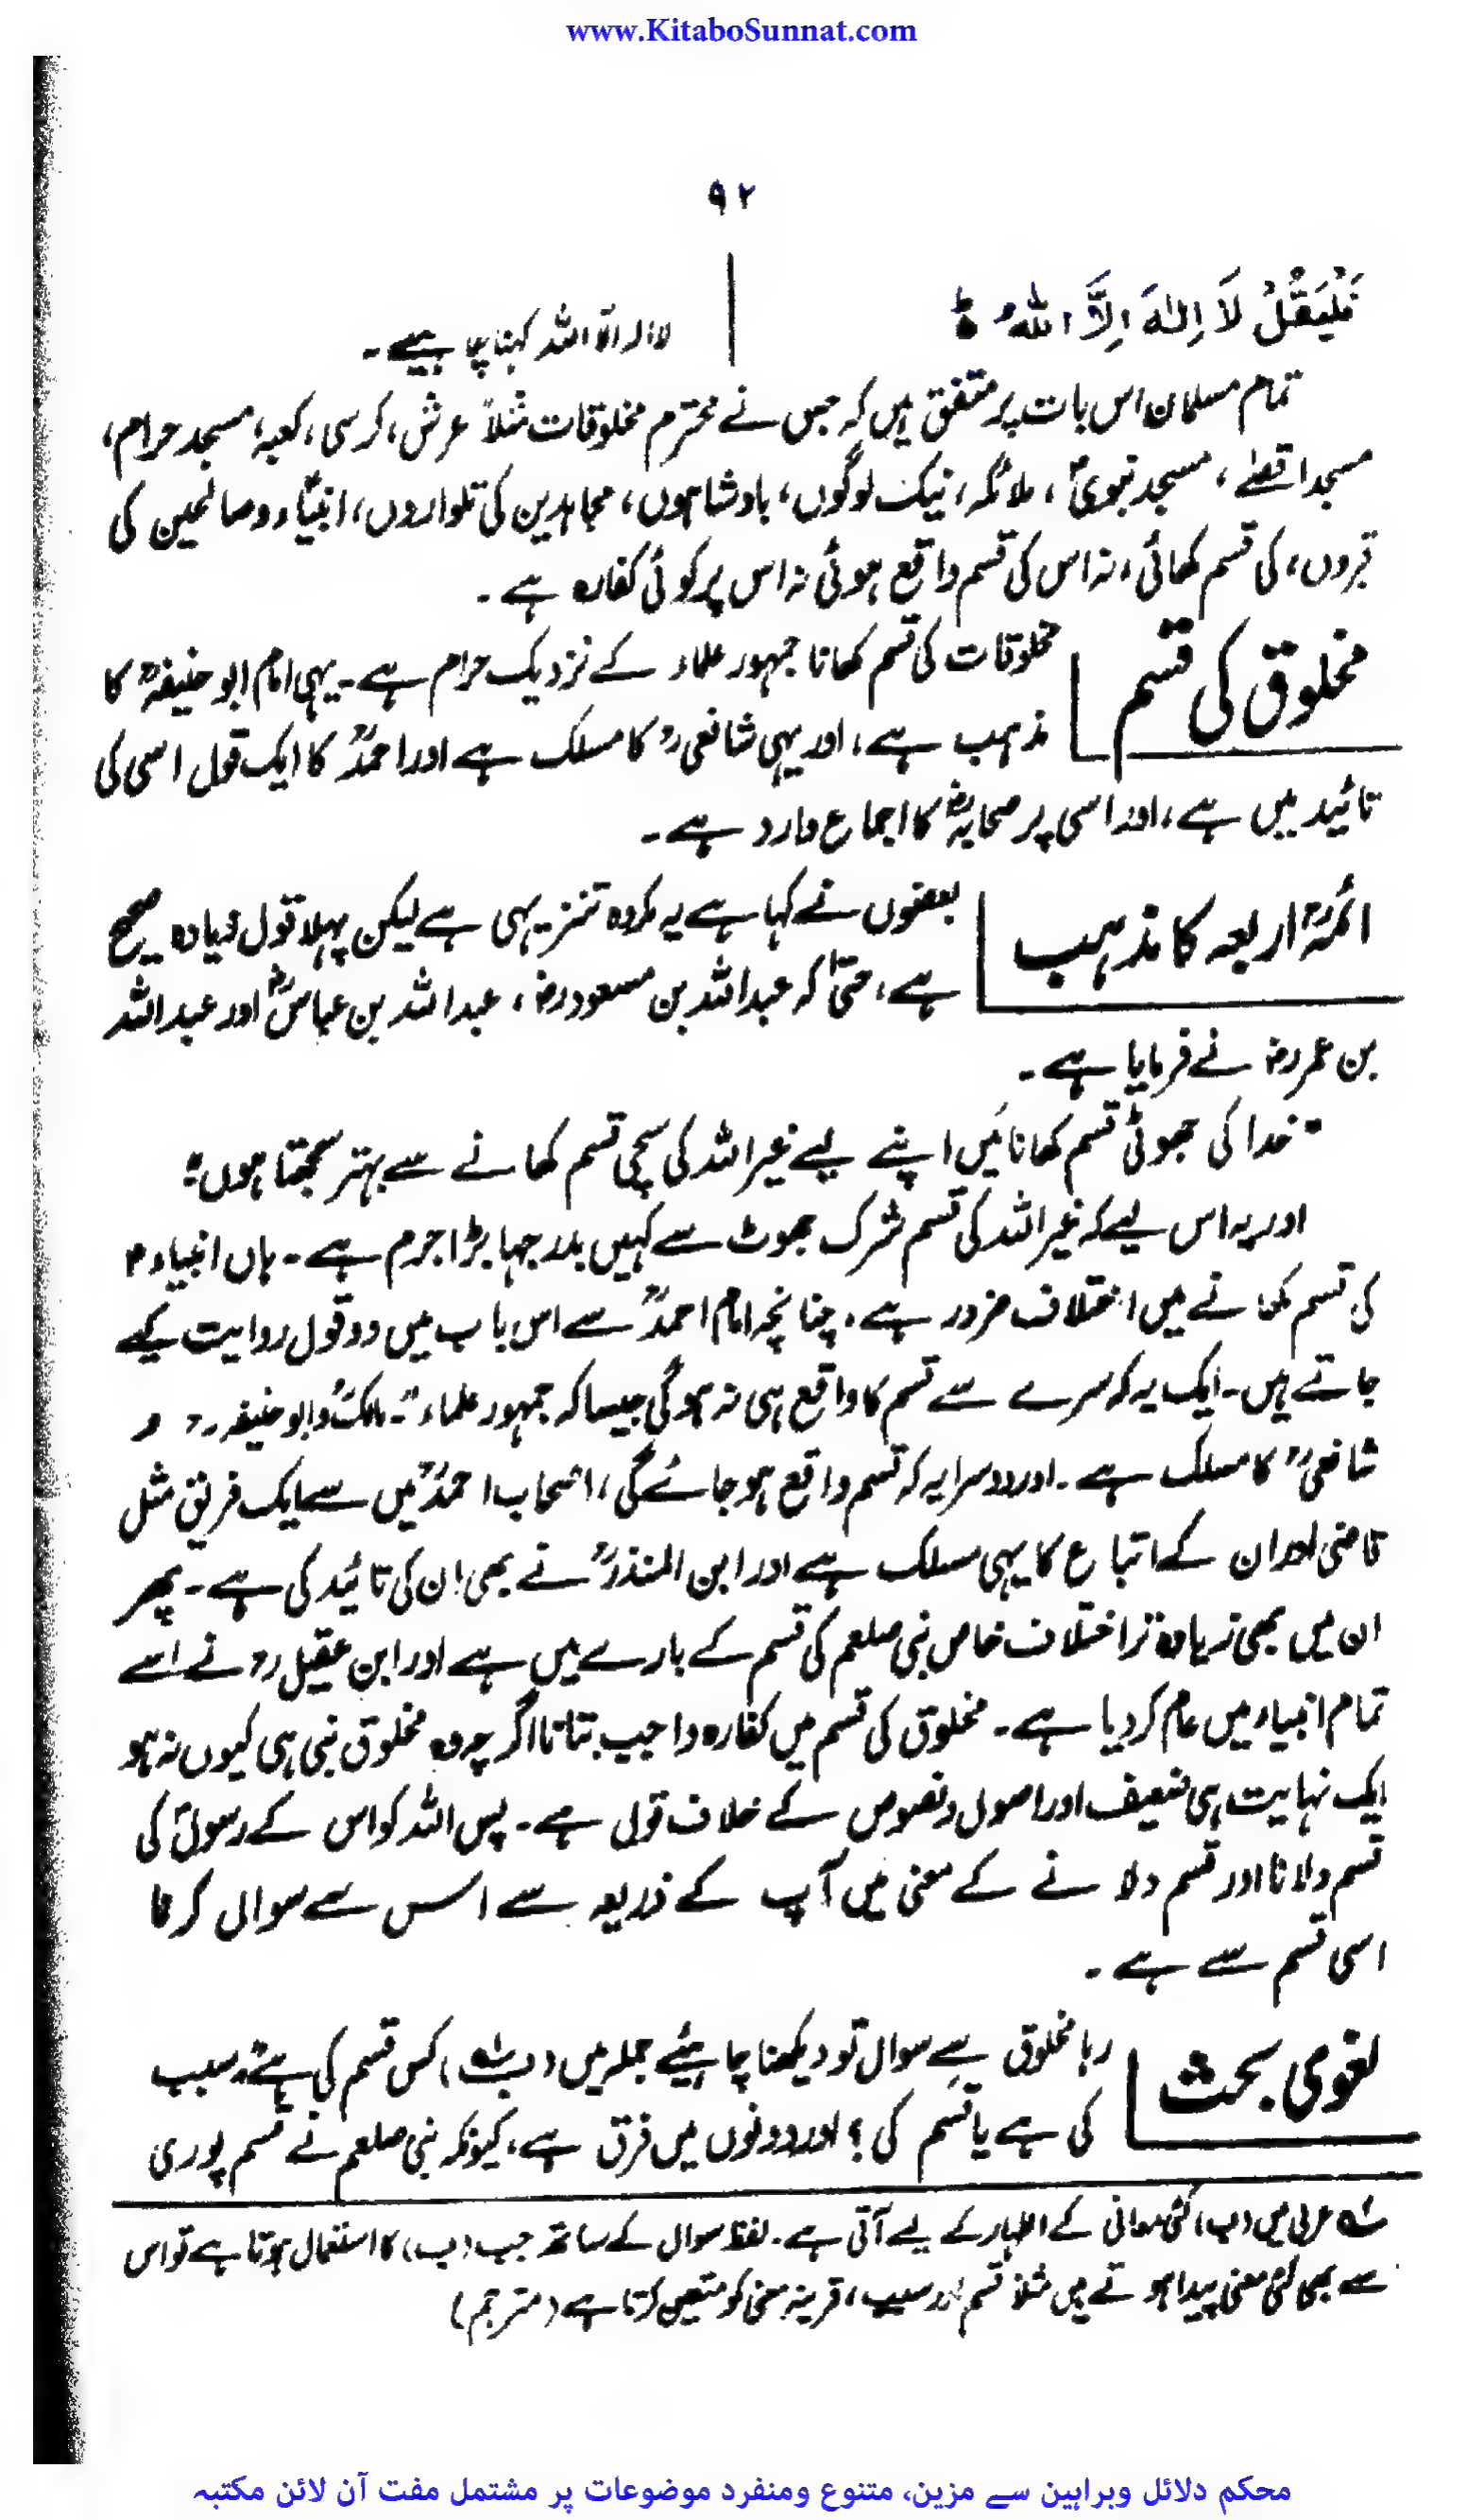 www.KitaboSunnat.com
۹۲
فَلْيَقُلْ لَا اِلٰهَ اِلَّا اللّٰهُ ؕ
لا الہ الا اللہ کہنا چاہیے ۔
تمام مسلمان اس بات پر متفق ہیں کہ جس نے محترم مخلوقات مثلاً عرش، کرسی، کعبہ، مسجد حرام،
مسجد اقصےٰ، مسجد نبویؐ، ملائکہ، نیک لوگوں، بادشاہوں، مجاہدین کی تلواروں، انبیاؑء و صالحین کی
قبروں، کی قسم کھائی، نہ اس کی قسم واقع ہوئی نہ اس پر کوئی کفارہ ہے ۔
مخلوق کی قسم
مخلوقات کی قسم کھانا جمہور علماء کے نزدیک حرام ہے۔ یہی امام ابو حنیفہؒ کا
مذہب ہے، اور یہی شافعیؒ کا مسلک ہے اور احمدؒ کا ایک قول اسی کی
تائید میں ہے، اور اسی پر صحابہؓ کا اجماع وارد ہے ۔
ائمہؒ اربعہ کا مذہب
بعضوں نے کہا ہے یہ مکروہ تنزیہی ہے لیکن پہلا قول زیادہ صحیح
ہے، حتیٰ کہ عبداللہ بن مسعودرض، عبداللہ بن عباسؓ اور عبداللہ
بن عمررض نے فرمایا ہے ۔
"خدا کی جھوٹی قسم کھانا مَیں اپنے لیے غیر اللہ کی سچی قسم کھانے سے بہتر سمجھتا ہوں"
اور یہ اس لیے کہ غیر اللہ کی قسم شرک جھوٹ سے کہیں بدرجہا بڑا جرم ہے۔ ہاں انبیاءؑ
کی قسم کھانے میں اختلاف ضرور ہے، چنانچہ امام احمدؒ سے اس باب میں دو قول روایت کیے
جاتے ہیں۔ ایک یہ کہ سرے سے قسم کا واقع ہی نہ ہوگی جیسا کہ جمہور علماءؒ۔ مالکؒ و ابو حنیفہؒ و
شافعیؒ کا مسلک ہے۔ اور دوسرا یہ کہ قسم واقع ہو جائے گی، اصحاب احمدؒ میں سے ایک فریق مثل
قاضی اور ان کے اتباع کا یہی مسلک ہے اور ابن المنذرؒ نے بھی ان کی تائید کی ہے۔ پھر
ان میں بھی زیادہ تر اختلاف خاص نبی صلعم کی قسم کے بارے میں ہے اور ابن عقیلؒ نے اسے
تمام انبیاء میں عام کر دیا ہے۔ مخلوق کی قسم میں کفارہ واجب بتانا اگرچہ وہ مخلوق نبی ہی کیوں نہ ہو
ایک نہایت ہی ضعیف اور اصول و نصوص کے خلاف قول ہے۔ پس اللہ کو اس کے رسولؐ کی
قسم دلانا اور قسم دلانے کے معنی میں آپ کے ذریعہ سے اس سے سوال کرنا
اسی قسم سے ہے ۔
لغوی بحث
رہا مخلوق سے سوال تو دیکھنا چاہئیے جملہ میں (ب)؂۱ کس قسم کی ہے؟ سبب
کی ہے یا قسم کی؟ اور دونوں میں فرق ہے، کیونکہ نبی صلعم نے قسم پوری
؂۱ عربی میں (ب) کئی معانی کے اظہار کے لیے آتی ہے۔ لفظ سوال کے ساتھ جب (ب) کا استعمال ہوتا ہے تو اس
سے بھی کئی معنی پیدا ہوتے ہیں مثلاً قسم اور سبب، قرینہ معنی کو متعین کرتا ہے (مترجم)
محکم دلائل وبراہین سے مزین، متنوع ومنفرد موضوعات پر مشتمل مفت آن لائن مکتبہ